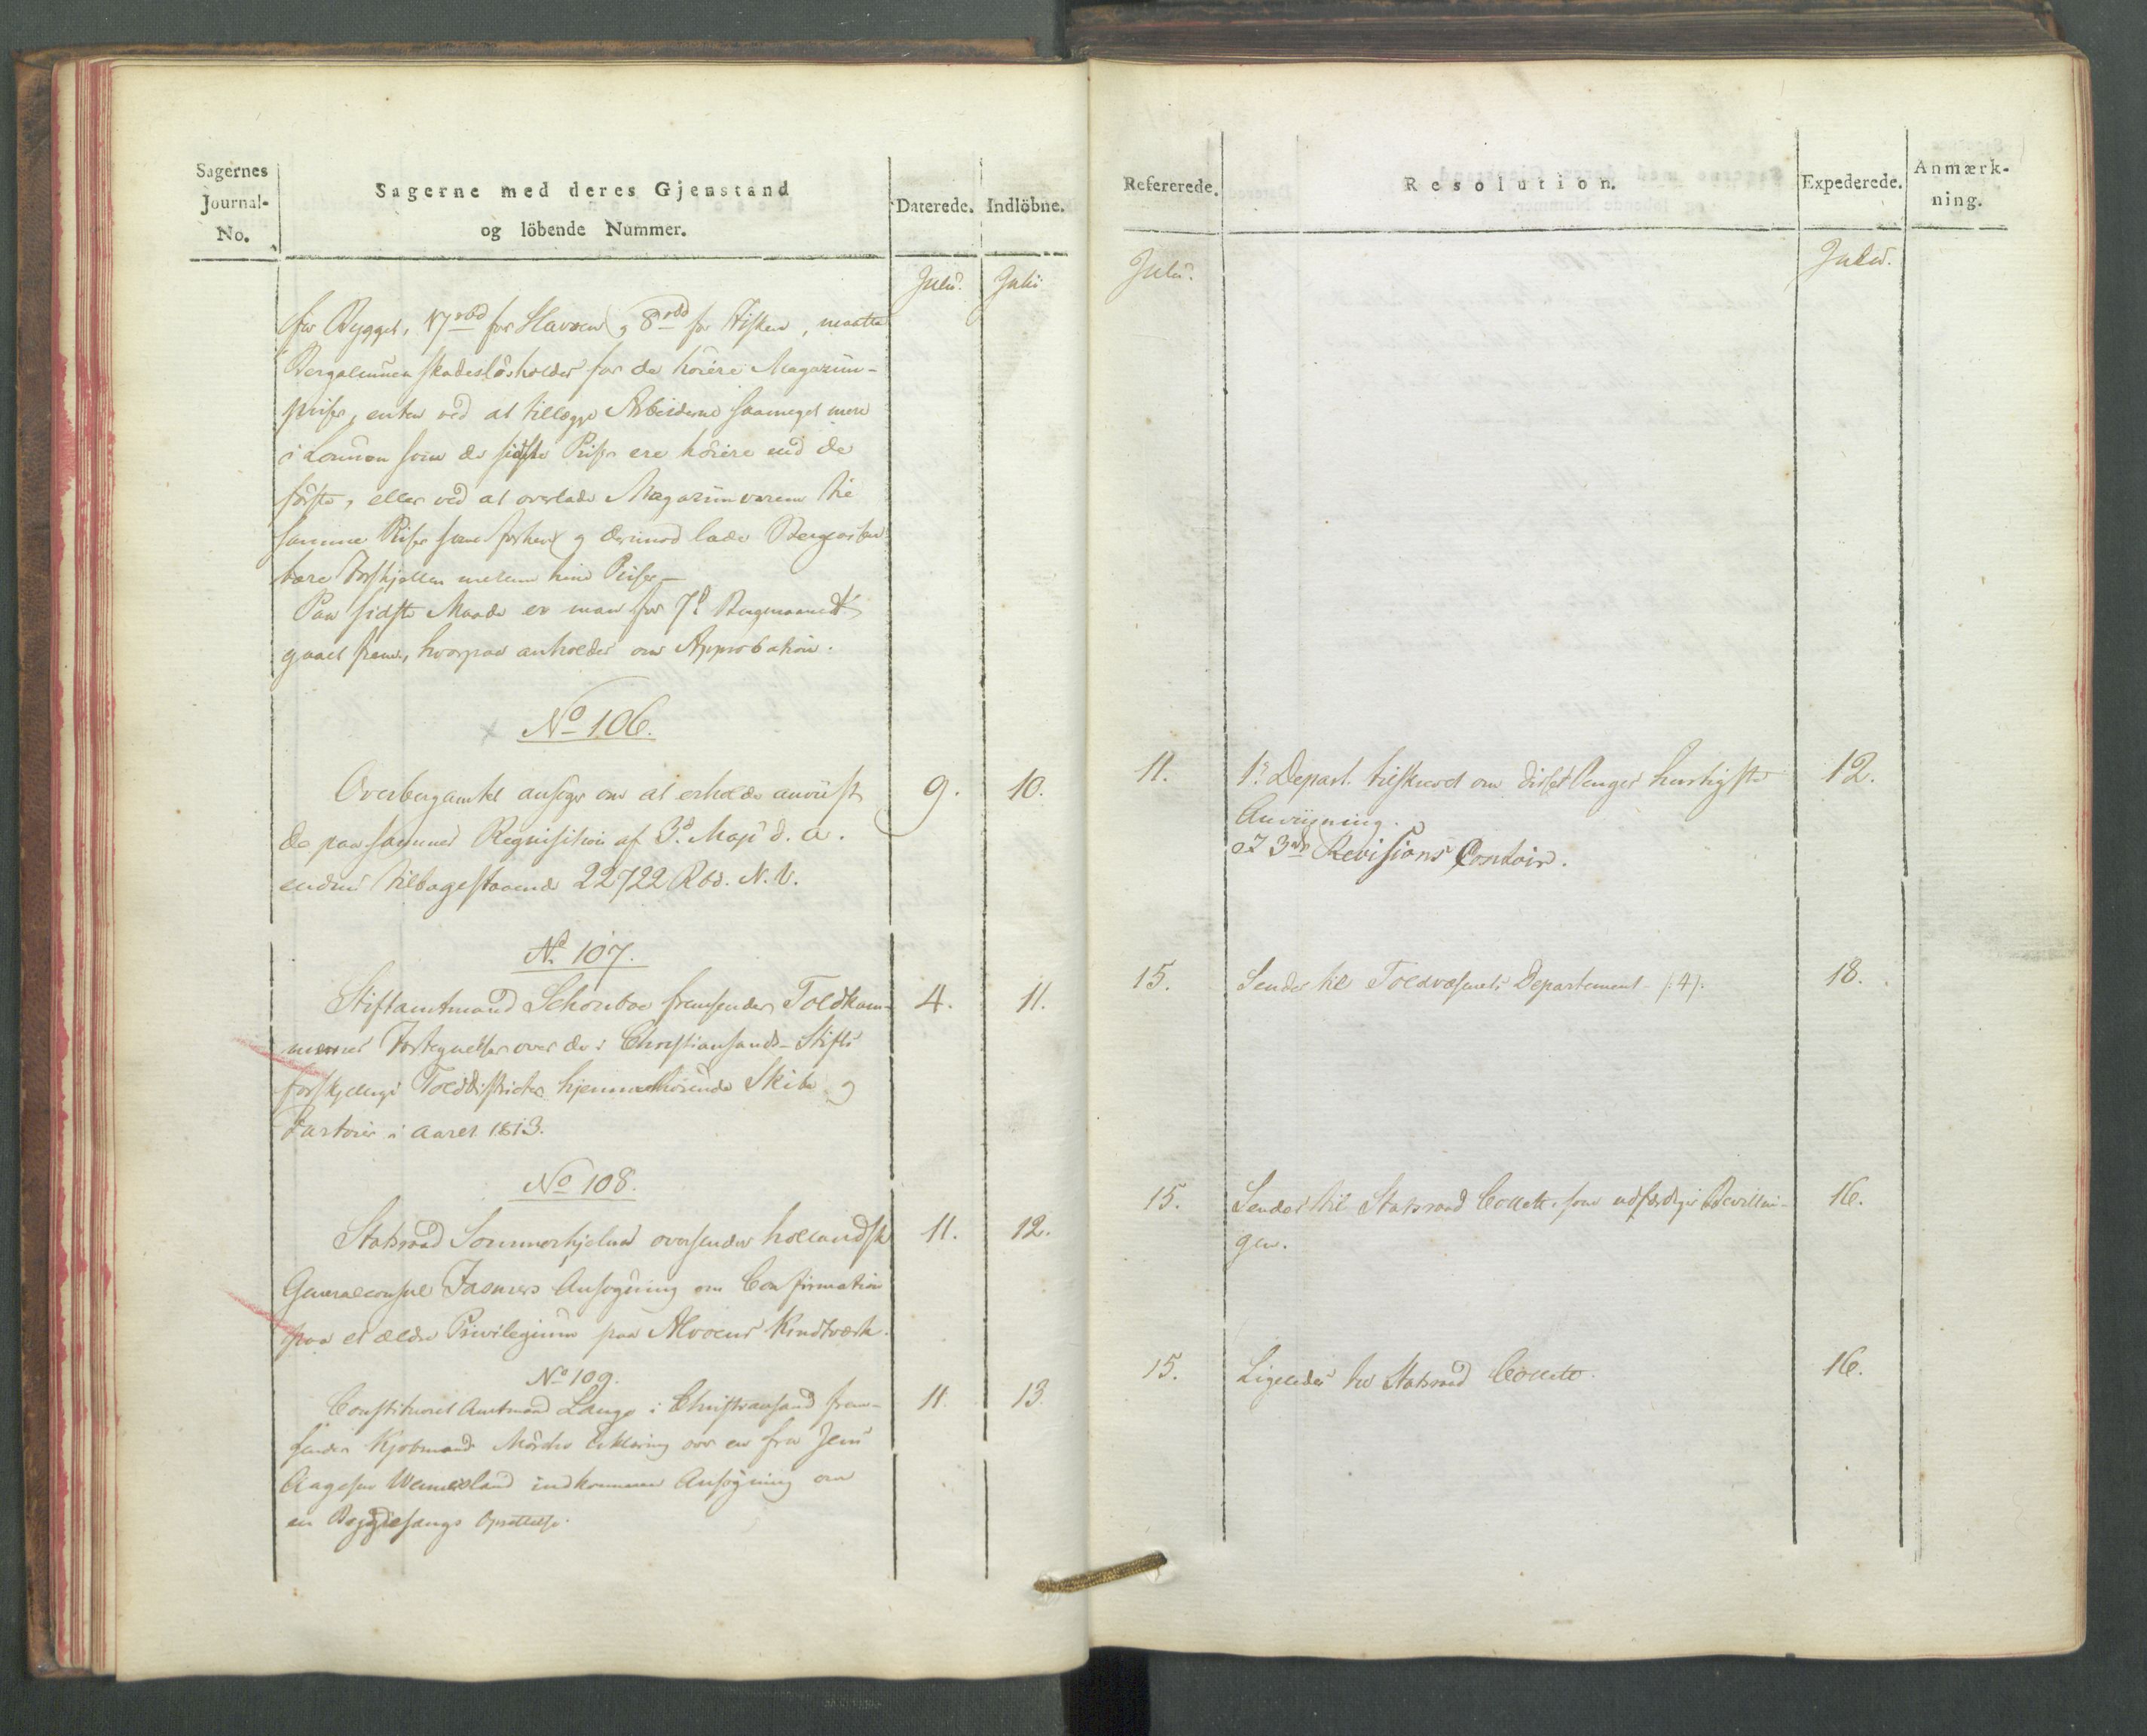 Sagernes
Journal-
No.
Sagerne med deres Gjenstand
og löbende Nummer.
Daterede.
Indlöbne.
Julii.
Julii
for Bygget, 17 rbd for Havren og 8 rbd for Fisken, maatte
skadeslösholdes for de höiere Magazin-
priser, enten ved at tillægge Arbeiderne saameget mere
i Lönnen som de sidste Priser ere höiere end de
förste, eller ved at overlade Magazinvarene til
samme Priser som forhen og derimod lade
bære Forskjellen mellem hine Priser_
Paa sidste Maade er man for 7de Bergmaaned
gaaet frem, hvorpaa anholdes om Approbation.
No 106.
Overbergamtet ansöger om at erholde anviist
de paa sammes Requisition af 3d. Maji d. A.
endnu tilbagestaaende 22722 Rbd. N.V.
9.
10.
No 107.
Stiftamtmand Schouboe fremsender Toldkam-
merernes Fortegnelser over de i Christiansands-Stifts
forskjellige Tolddistricter hjemmehörende Skibe og
Fartöier i Aaret 1813.
4.
11.
No 108.
Statsraad Sommerhjelm oversender hollandsk
Generalconsul Fasmers Ansögning om Confirmation
paa et ældre Privilegium paa Alvöens Krudtværk.
11.
12.
No 109.
Constitueret Amtmand Lange i Christiansand frem-
sender Kjöbmand Mörchs Erklæring over en fra Jens
Aagesen indkommen Ansögning om
en Oprettelse.
11.
13.
Refererede.
Resolution.
Expederede.
Anmærk-
ning.
Julii.
Julii.
11.
1e Depart. tilskrevet om disse Penges hurtigste
Anviisning.
et 3die Revisions Contoir.
12.
15.
Sendes til Toldvæsnets Departement /:4/.
18.
15.
Sendes til Statsraad Collett, som udfærdiger Bevillin-
gen.
16.
15.
Ligeledes til Statsraad Collett.
16.